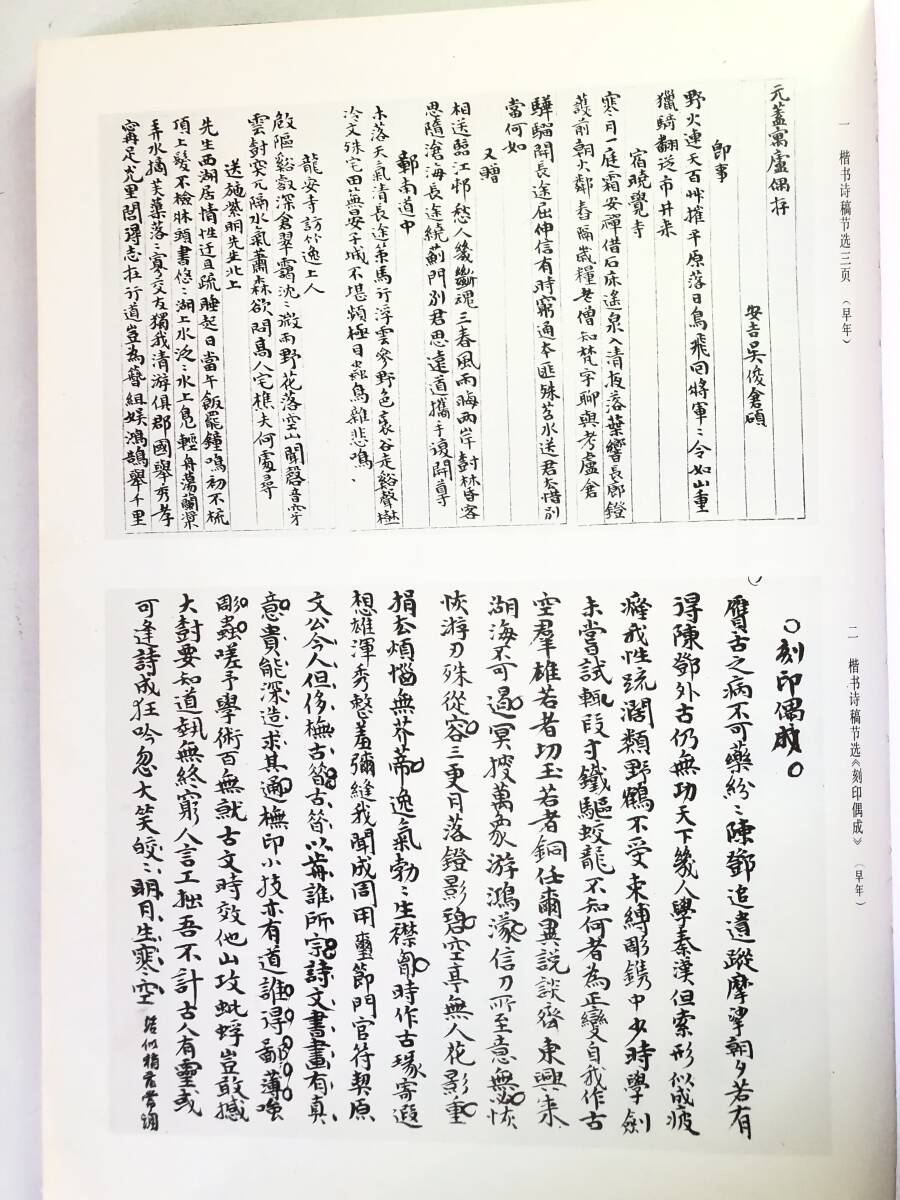 一 楷书诗稿节选三页 (早年)
元蓋寓廬偶存
安吉吳俊倉碩
即事
野火連天百艸摧平原落日鳥飛回將軍〻令如山重
獵騎翻從市井来
宿曉覺寺
寒月一庭霜安禪借石床遠泉入清夜落葉響長廊鐙
護前朝火鄰舂隔歲糧老僧知梵字聊與考虛倉
又贈
驊騮開長途屈伸信有時窮通本匪殊苕水送君去惜別
當何如
相送臨江邨愁人幾斷魂三春風雨晦兩岸對林昏客
思隨滄海長途繞薊門別君思遠道攜手復開尊
鄣南道中
木落天氣清長途策馬行浮雲參野色衰谷走谿聲
冷文殊宅田蕪晏子城不堪頻極目蟲鳥雜悲鳴
龍安寺訪竹逸上人
啟隔谿穀深倉翠靄沈〻微雨野花落空山聞磬音穿
雲封突兀隔水氣蕭森欲問高人宅樵夫何處尋
送施紫明先生北上
先生西湖居情性迂且疏睡起日當午飯罷鐘鳴初不梳
頂上髮不檢牀頭書悠〻湖上水泛〻水上鳧輕舟蕩蘭槳
弄水摘芙蕖落〻寡交友獨我清游俱郡國舉秀孝
甯足光里閭得志在行道豈為簪組娱鴻鵠舉千里
二 楷书诗稿节选《刻印偶成》 (早年)
刻印偶成
贗古之病不可藥紛〻陳鄧追遺蹤摩挲朝夕若有
得陳鄧外古仍無功天下幾人學秦漢但索形似成疲
癃我性疏濶類野鶴不受束縛彫鐫中少時學劍
未嘗試輒段寸鐵驅蛟龍不知何者為正變自我作古
空羣雄若者切玉若者銅任爾異說談齊東興來
湖海不可遏冥搜萬象游鴻濛信刀所至意無必恢
恢游刃殊從容三更月落鐙影碧空亭無人花影重
捐去煩惱無芥蒂逸氣勃〻生襟胷時作古篆寄遐
想雄渾秀整羞彌縫我聞成周用璽節門官符契原
文公今人但侈橅古昔古昔以前誰所宗詩文書畫有真
意貴能深造求其通橅印小技亦有道誰得鄙薄嗤
彫蟲嗟予學術百無就古文時效他山攻蚍蜉豈敢撼
大封要知道藝無終窮人言工拙吾不計古人有靈或
可逢詩成狂吟忽大笑皎〻明月生寒空